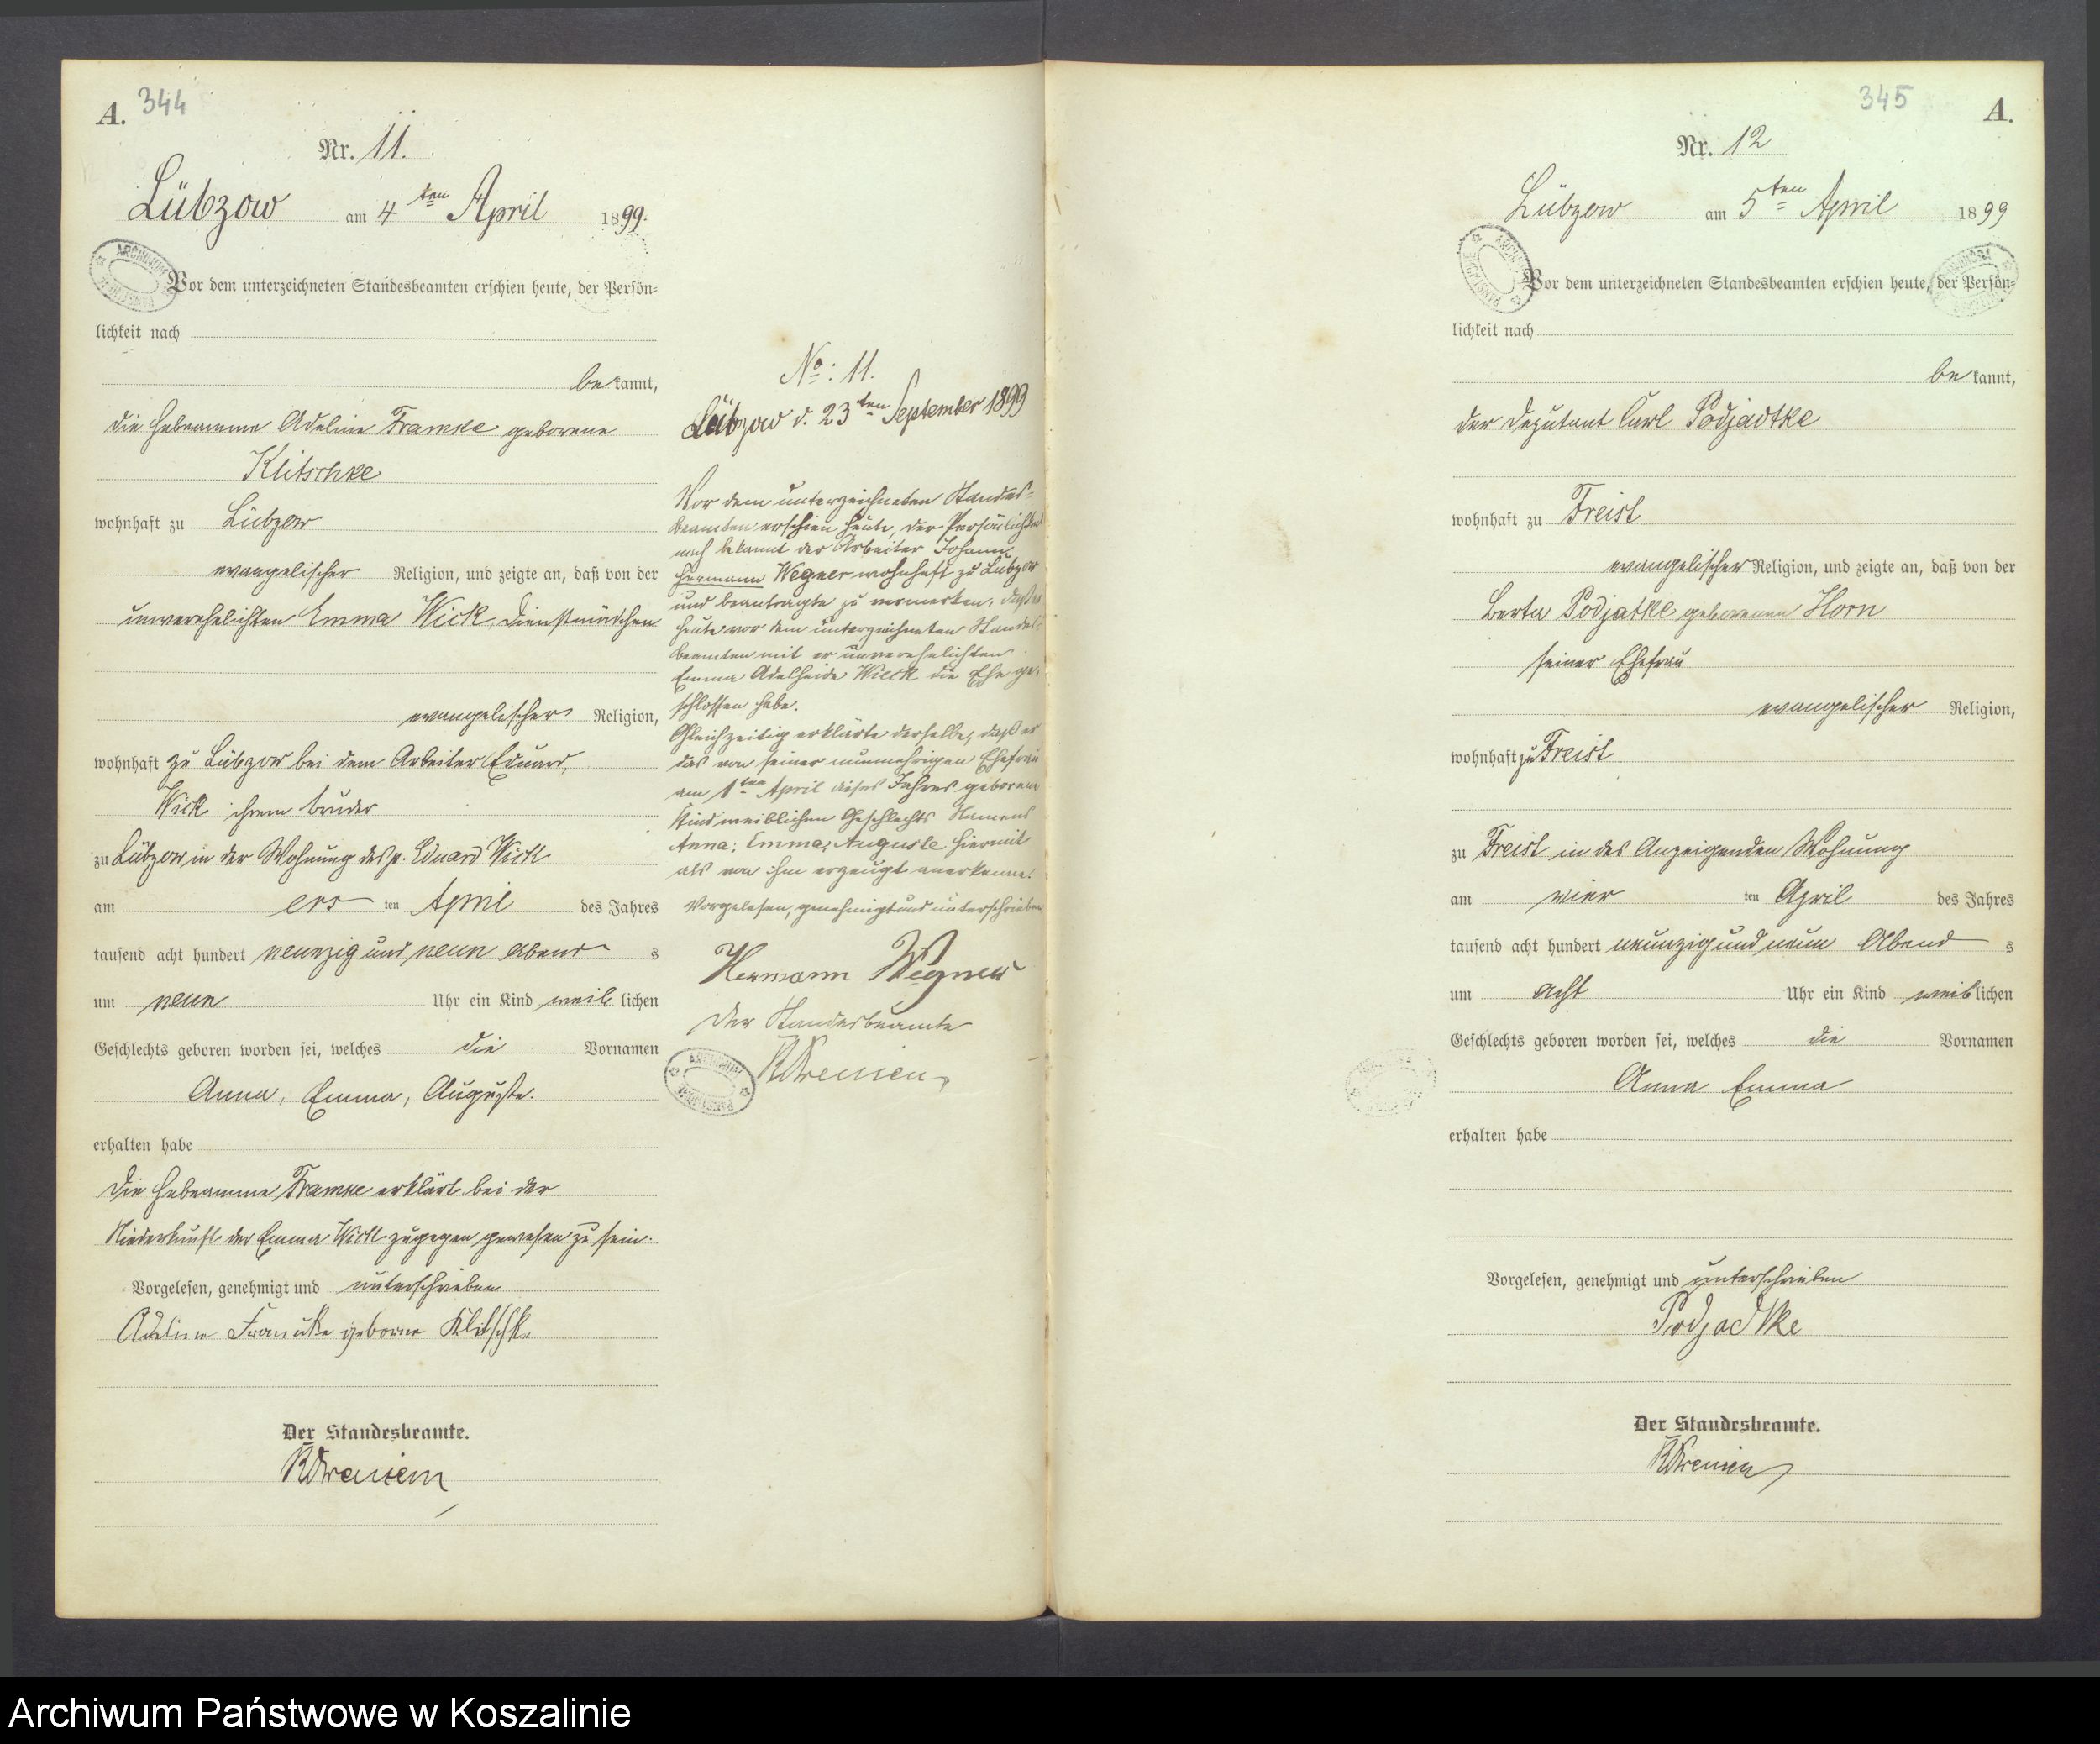 A. 344
Nr. 11.
Lübzow am 4ten April 1899.
Vor dem unterzeichneten Standesbeamten erschien heute, der Persön=
lichkeit nach
bekannt,
die Hebeamme Adeline Framke geborene
Klitschke
wohnhaft zu Lübzow
evangelischer Religion, und zeigte an, daß von der
unverehelichten Emma Wick, Dienstmädchen
evangelischer Religion,
wohnhaft zu Lübzow bei dem Arbeiter Eduard,
Wick ihrem Bruder
zu Lübzow in der Wohnung des p. Eduard Wick
am ersten April des Jahres
tausend acht hundert neunzig und neun Abends
um neun Uhr ein Kind weiblichen
Geschlechts geboren worden sei, welches die Vornamen
Anna, Emma, Auguste.
erhalten habe
Die Hebeamme Framke erklärt bei der
Niederkunft der Emma Wick zugegen gewesen zu sein.
Vorgelesen, genehmigt und unterschrieben
Adeline Framke geborne Klitschke
Der Standesbeamte.
No: 11.
Lübzow d. 23ten September 1899
Vor dem unterzeichneten Standes=
beamten erschien heute, der Persönlichkeit
nach bekannt der Arbeiter Johann
Hermann Wegner wohnhaft zu Lübzow
und beantragte zu vermerken, daß er
heute vor dem unterzeichneten Standes=
beamten mit er unverehelichten
Emma Adelheide Wieck die Ehe ge=
schlossen habe.
Gleichzeitig erklärte derselbe, daß er
das von seiner nunmehrigen Ehefrau
am 1ten April dieses Jahres geborene
Kind weiblichen Geschlechts Namens
Anna; Emma; Auguste hiermit
als von ihm erzeugt anerkenne.
Vorgelesen, genehmigt und unterschrieben
Hermann Wegner
Der Standesbeamte
345 A.
Nr. 12
Lübzow am 5ten April 1899
Vor dem unterzeichneten Standesbeamten erschien heute, der Persön=
lichkeit nach
bekannt,
der Deputant Carl Podjadtke
wohnhaft zu Freist
evangelischer Religion, und zeigte an, daß von der
Berta Podjatke geborenen Horn
seiner Ehefrau
evangelischer Religion,
wohnhaft zu Freist
zu Freist in des Anzeigenden Wohnung
am vierten April des Jahres
tausend acht hundert neunzig und neun Abends
um acht Uhr ein Kind weiblichen
Geschlechts geboren worden sei, welches die Vornamen
Anna Emma
erhalten habe
Vorgelesen, genehmigt und unterschrieben
Podjadtke
Der Standesbeamte.
Archiwum Państwowe w Koszalinie